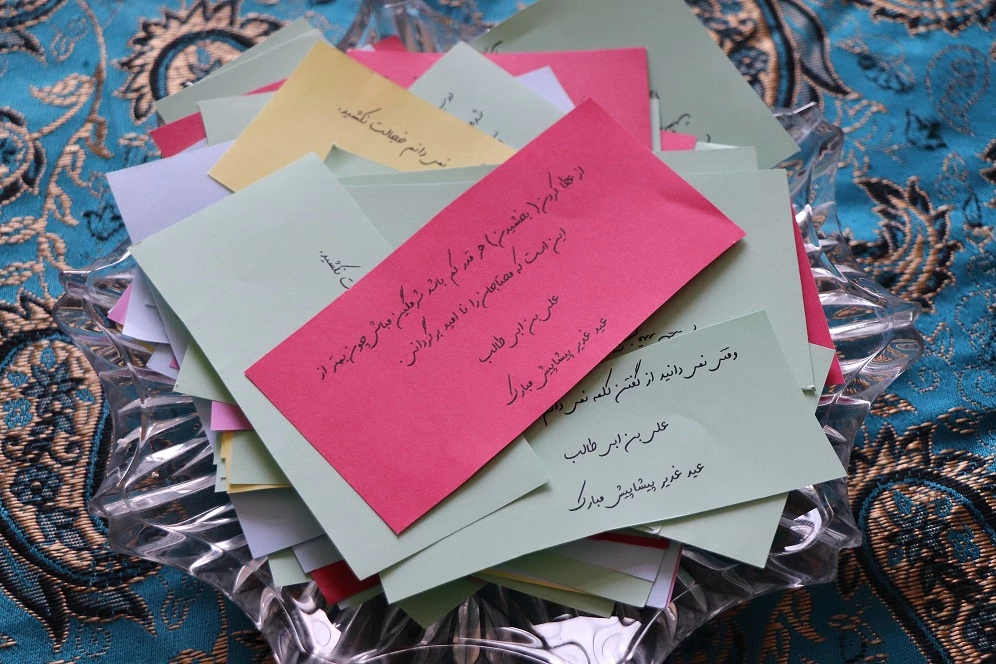 نمی دانم خجالت نکشید.
ت نکشید.
از عطا کردن (بخشیدن) هر قدر کم باشد شرمگین مباش چون بهتر از
این است که محتاجان را نا امید برگردانی.
علی بن ابی طالب
عید غدیر پیشاپیش مبارک
وقتی نمی دانید از گفتن کلمه نمی دانم
علی بن ابی طالب
عید غدیر پیشاپیش مبارک